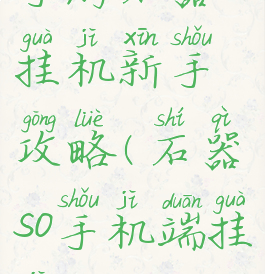 guà jī xīn shǒu
挂机新手
gōng lüè shí qì
攻略(石器
shǒu jī duān guà
so手机端挂